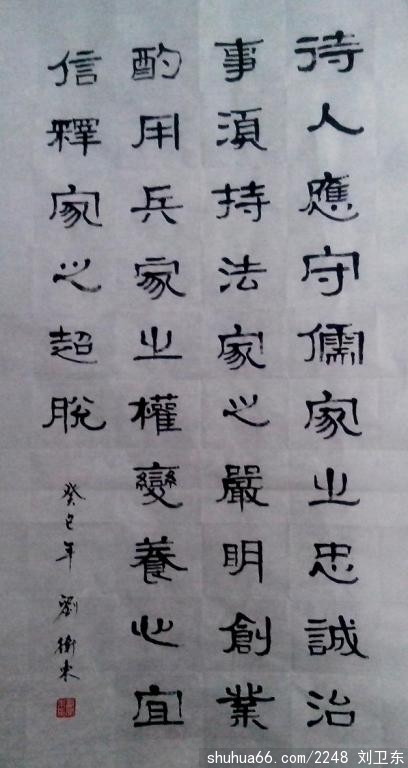 待人應守儒家之忠誠治
事須持法家之嚴明創業
酌用兵家之權變養心宜
信釋家之超脫
癸巳年 劉衛東
shuhua66.com/2248 刘卫东